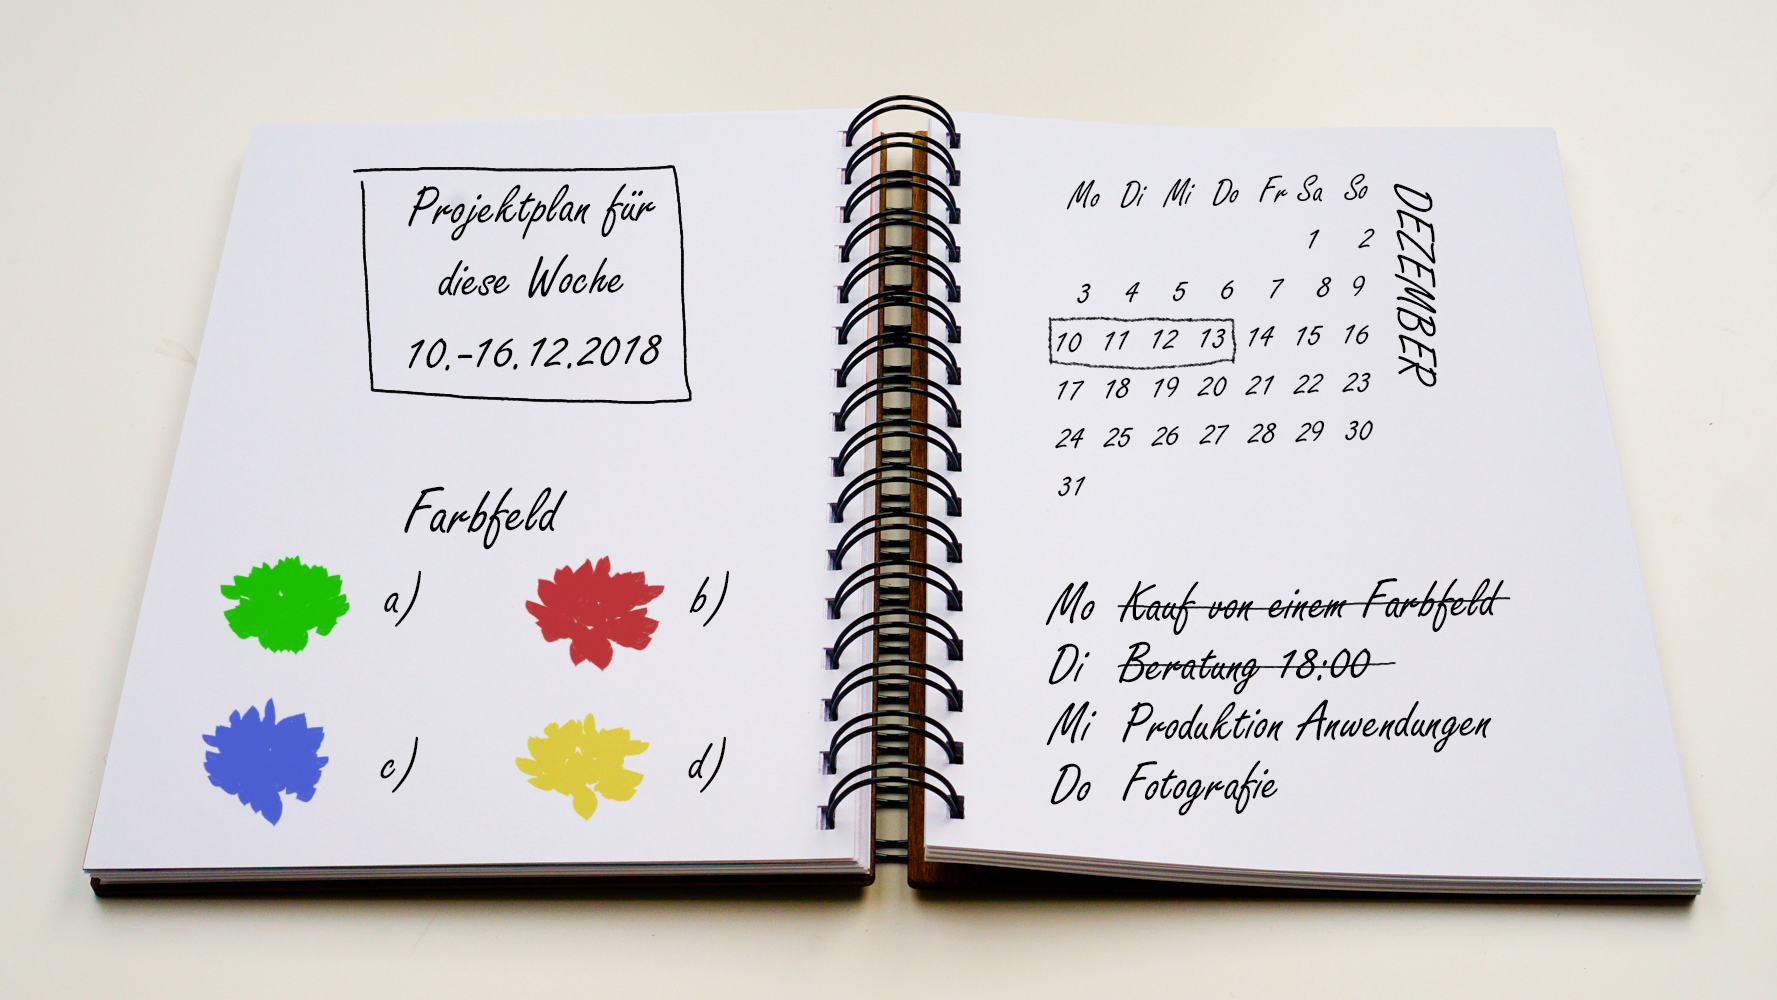 Projektplan für
diese Woche
10.-16.12.2018
Farbfeld
a) b)
c) d)
DEZEMBER
Mo Di Mi Do Fr Sa So
1 2
3 4 5 6 7 8 9
10 11 12 13 14 15 16
17 18 19 20 21 22 23
24 25 26 27 28 29 30
31
Mo Kauf von einem Farbfeld
Di Beratung 18:00
Mi Produktion Anwendungen
Do Fotografie